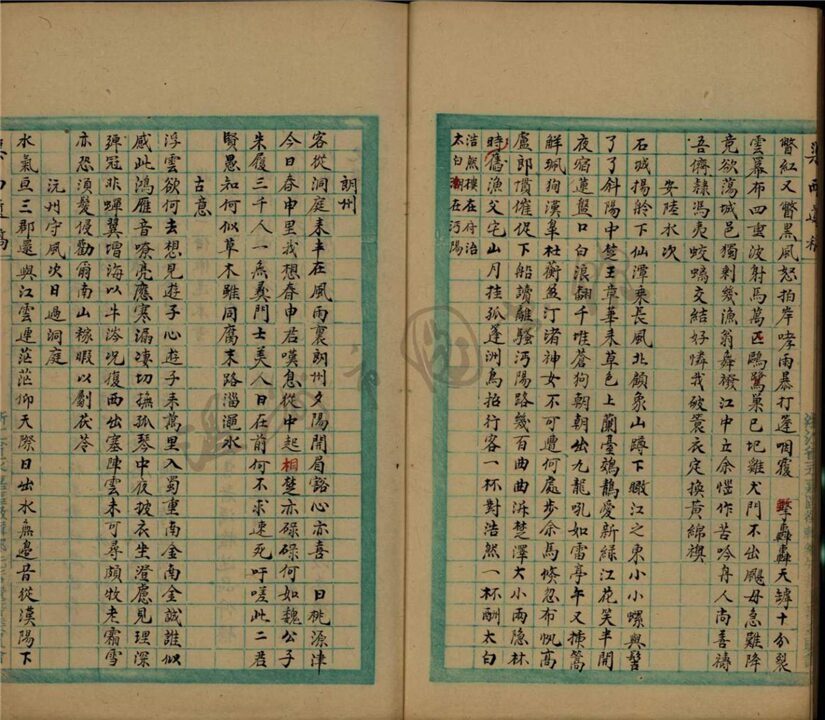 瞥紅又瞥黑風怒拍岸哮雨暴打篷咽霞擊轟轟天罅十分裂
雲幕布四垂波射馬萬匹鷗鷺巢已圮雞犬門不出颶母急難降
竟欲蕩城邑獨剩幾漁翁舞襏江中立余愷作苦吟舟人尚善禱
吾儕隸馮夷蛟螭交結好憐我破簑衣定換黃綿襖
安陸水次
石城揚舲下仙潭乘長風北顧象山蹲下瞰江之東小小螺與髻
了了斜陽中楚王章華來草色上蘭臺鵁鶄愛新綠江花笑半開
夜宿蓮盤口白浪翻千唯蒼狗朝朝出九龍吼如雷亭午又揀篙
解珮狗漢皋杜蘅盆汀渚神女不可遭何處步余馬倏忽布帆高
盧郎慣催促下船讀離騷沔陽路幾百曲曲泝楚澤大小兩隱林
時舊漁父宅山月挂孤蓬洲鳥招行客一杯對浩然一杯酬太白
浩然摸在府治
太白湖在沔陽
朗州
客從洞庭來半在風雨裏朗州夕陽開眉豁心亦喜日桃源津
今日春申里我想春申君嘆息從中起相楚亦碌碌何如魏公子
朱履三千人一無義門士美人日在前何不求速死吁嗟此二君
賢愚知何似草木雖同腐末路淄澠水
古意
浮雲欲何去想見遊子心遊子來萬里入蜀重南金南金誠誰似
感此鴻雁音嘹亮應寒漏淒切撫孤琴中夜披衣坐澄慮見理深
彈冠非蟬翼增海以牛涔况復西出塞陣雲未可尋頗牧老霜雪
亦恐須髮侵勸爾南山稼暇以劚茯苓
沅州守風次日過洞庭
水氣亘三郡還與江雲連茫茫仰天際日出水無邊昔從漢陽下